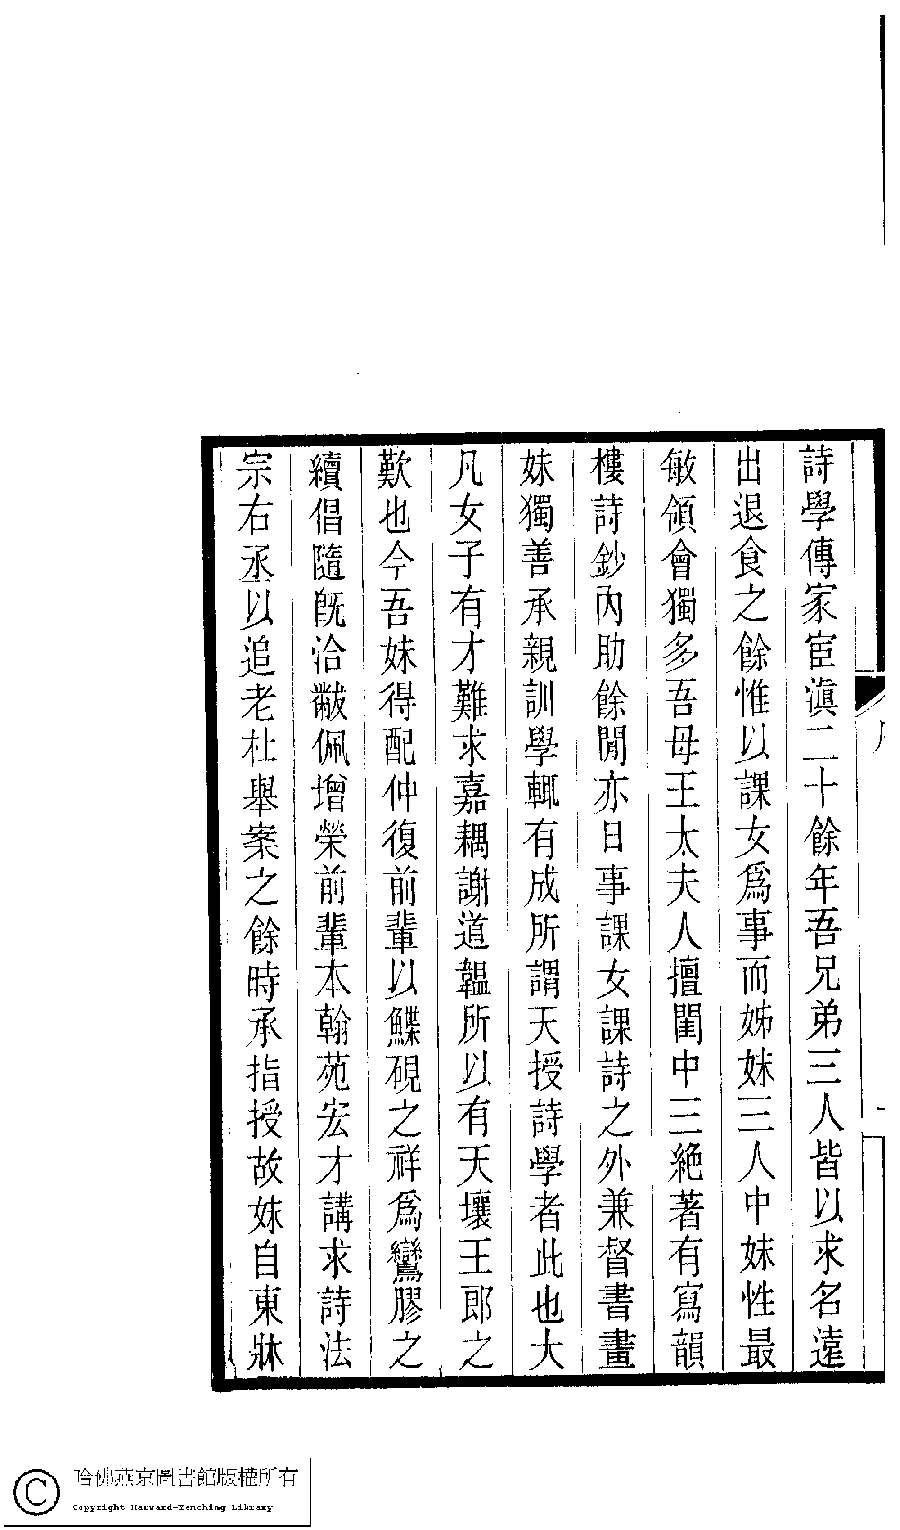 詩學傳家宦滇二十餘年吾兄弟三人皆以求名遠
出退食之餘惟以課女爲事而姊妹三人中妹性最
敏領會獨多吾母王太夫人擅閨中三絶著有寫韻
樓詩鈔內助餘閒亦日事課女課詩之外兼督書畫
妹獨善承親訓學輒有成所謂天授詩學者此也大
凡女子有才難求嘉耦謝道韞所以有天壤王郎之
歎也今吾妹得配仲復前輩以鰈硯之祥爲鸞膠之
續倡隨旣洽黻佩增榮前輩本翰苑宏才講求詩法
宗右丞以追老杜舉案之餘時承指授故妹自東牀
哈佛燕京圖書館版權所有
Copyright Harvard-Yenching Library